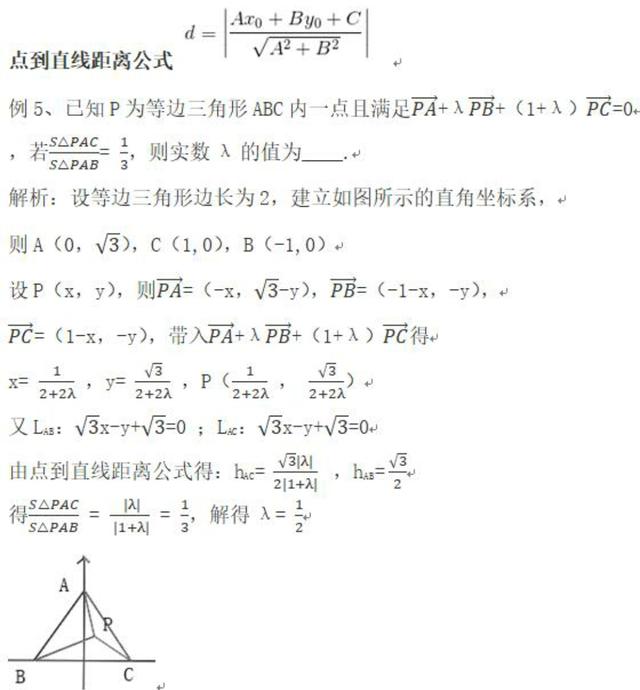 点到直线距离公式 d = |Ax₀ + By₀ + C / √(A² + B²)|
例 5、已知 P 为等边三角形 ABC 内一点且满足PA⃗+λPB⃗+（1+λ）PC⃗=0
，若S△PAC/S△PAB = 1/3，则实数 λ 的值为____.
解析：设等边三角形边长为 2，建立如图所示的直角坐标系，
则 A（0，√3），C（1,0），B（-1,0）
设 P（x，y），则PA⃗=（-x，√3-y），PB⃗=（-1-x，-y），
PC⃗=（1-x，-y），带入PA⃗+λPB⃗+（1+λ）PC⃗得
x= 1/(2+2λ) ，y= √3/(2+2λ) ，P（1/(2+2λ) ， √3/(2+2λ)）
又 L_AB：√3x-y+√3=0 ；L_AC：√3x-y+√3=0
由点到直线距离公式得：h_AC= √3|λ|/(2|1+λ|) ，h_AB=√3/2
得S△PAC/S△PAB = |λ|/|1+λ| = 1/3，解得 λ= 1/2
A
P
B
C